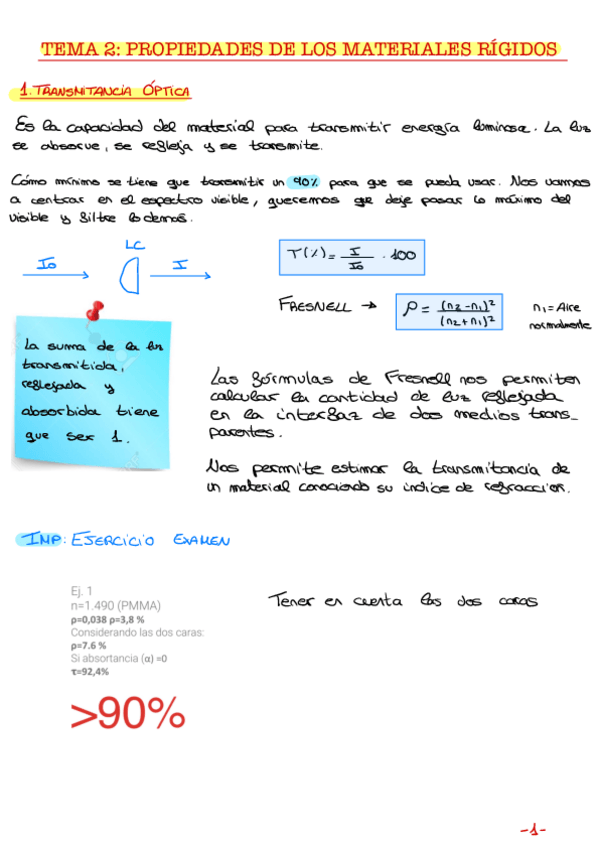 TEMA 2: PROPIEDADES DE LOS MATERIALES RÍGIDOS
1. TRANSMITANCIA ÓPTICA
Es la capacidad del material para transmitir energía luminosa. La luz
se absorve, se refleja y se transmite.
Cómo mínimo se tiene que transmitir un 90% para que se pueda usar. Nos vamos
a centrar en el espectro visible, queremos que deje pasar lo máximo del
visible y filtre lo demás.
LC
I₀
I
T(%) = I / I₀ · 100
FRESNELL → ρ = (n₂-n₁)² / (n₂+n₁)²
n₁ = Aire
normalmente
La suma de la luz
transmitida,
reflejada y
absorbida tiene
que ser 1.
Las fórmulas de Fresnell nos permiten
calcular la cantidad de luz reflejada
en la interfaz de dos medios trans-
parentes.
Nos permite estimar la transmitancia de
un material conociendo su índice de refracción.
IMP: EJERCICIO EXAMEN
Ej. 1
n=1.490 (PMMA)
ρ=0,038 ρ=3,8 %
Considerando las dos caras:
ρ=7.6 %
Si absortancia (α) =0
τ=92,4%
Tener en cuenta las dos caras
>90%
-1-